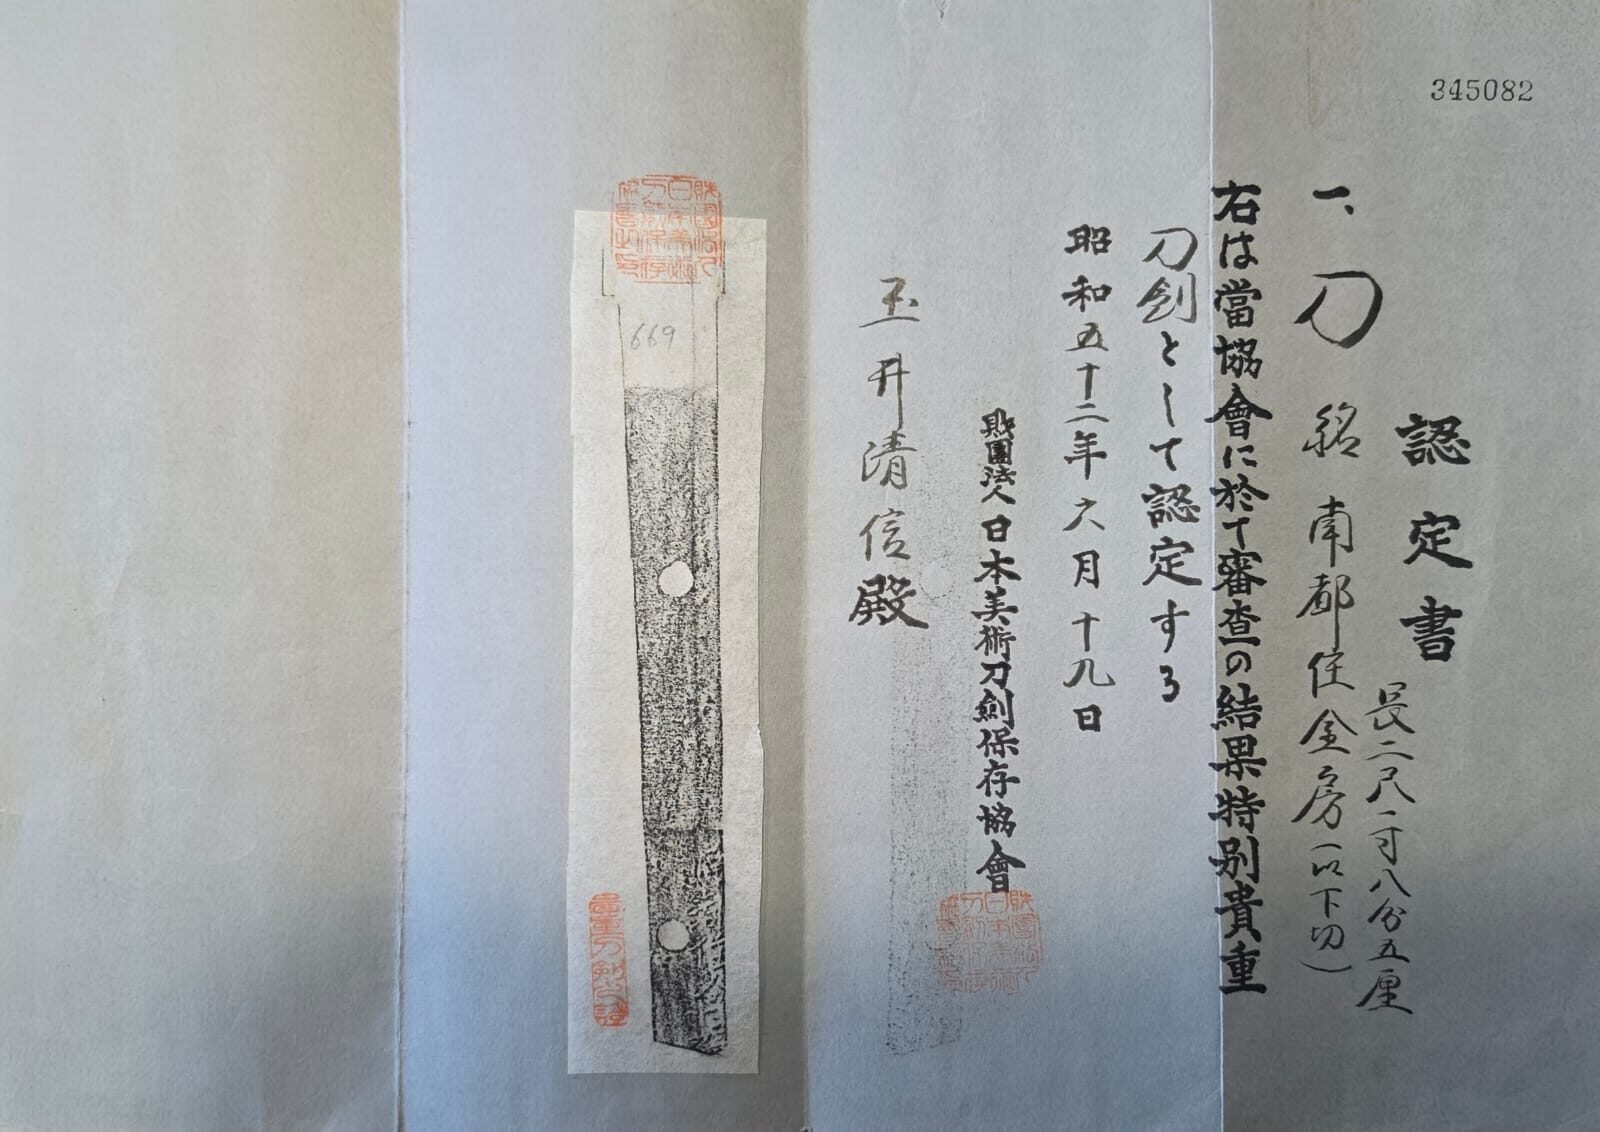 345082
認定書
一、刀 銘 南都住金房(以下切)
長二尺一寸八分五厘
右は當協會に於て審査の結果特別貴重
刀剣として認定する
昭和五十二年六月十九日
財團法人日本美術刀劍保存協會
玉井清信殿
669